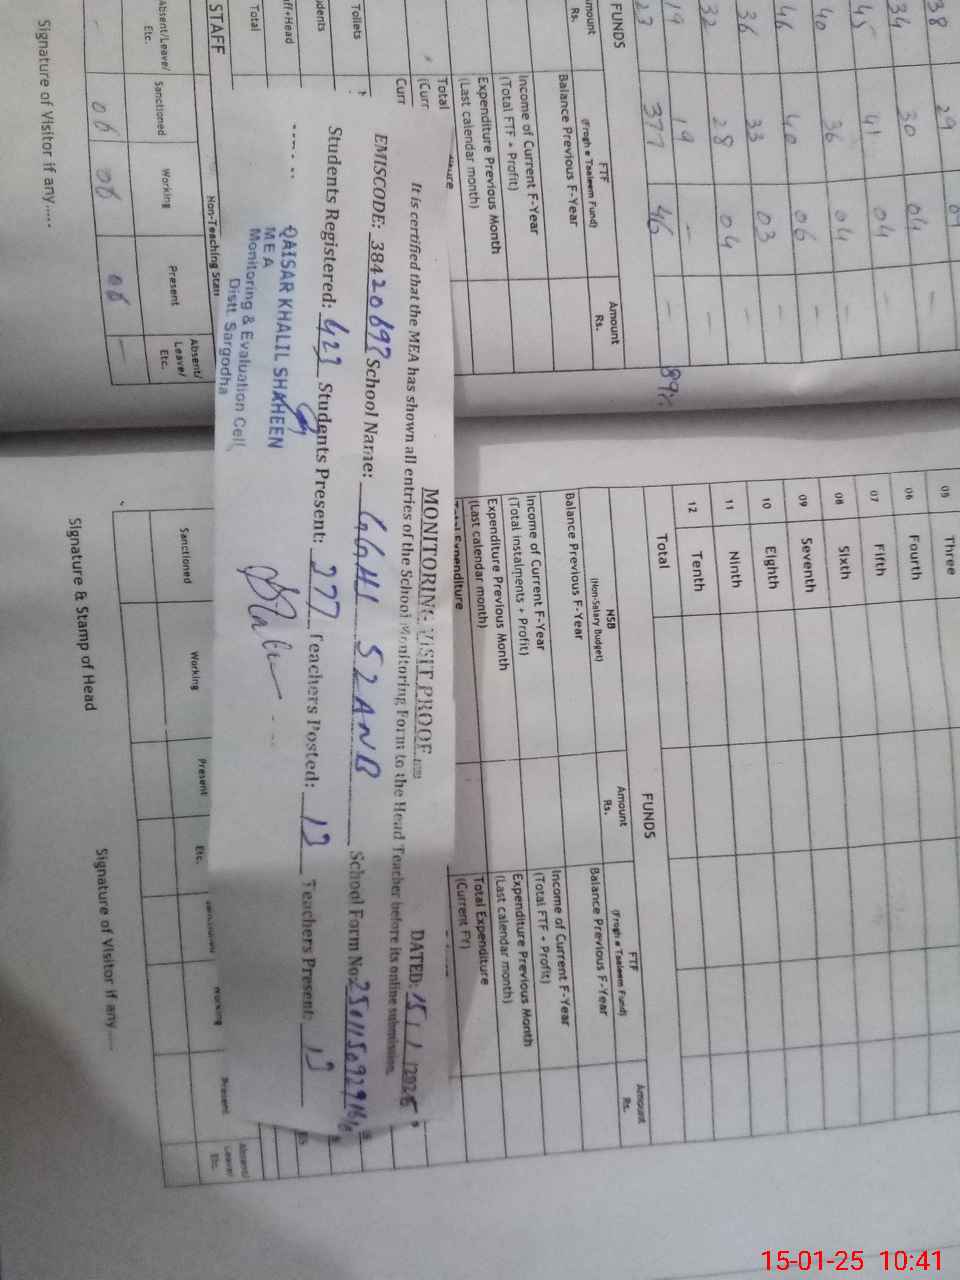 MONITORING VISIT PROOF
DATED: 15/1/2025
It is certified that the MEA has shown all entries of the School Monitoring Form to the Head Teacher before its online submission.
EMISCODE: 38420697 School Name: GGHS 52 ANB School Form No:
Students Registered: 423 Students Present: 277 Teachers Posted: 13 Teachers Present: 13
QAISAR KHALIL SHAHEEN
MEA
Monitoring & Evaluation Cell,
Distt. Sargodha
38 29
34 30 04
45 41 04 -
40 36 04 -
46 40 06 -
36 33 03 -
32 28 04 -
19 19 - -
377 46 - 89%
FUNDS
Amount Rs.
FTF
(Frogh e Taaleem Fund)
Amount Rs.
Balance Previous F-Year
Income of Current F-Year
(Total FTF + Profit)
Expenditure Previous Month
(Last calendar month)
Total
(Curr
Toilets
Total
STAFF
Non-Teaching Staff
Absent/Leave/ Etc.
Sanctioned
Working
Present
Absent/ Leave/ Etc.
- 06 06 06 -
Signature of Visitor if any.....
05 Three
06 Fourth
07 Fifth
08 Sixth
09 Seventh
10 Eighth
11 Ninth
12 Tenth
Total
FUNDS
NSB
(Non-Salary Budget)
Amount Rs.
FTF
(Frogh e Taaleem Fund)
Amount Rs.
Balance Previous F-Year
Balance Previous F-Year
Income of Current F-Year
(Total instalments + Profit)
Income of Current F-Year
(Total FTF + Profit)
Expenditure Previous Month
(Last calendar month)
Expenditure Previous Month
(Last calendar month)
Total Expenditure
Total Expenditure
(Current FY)
Sanctioned
Working
Present
Etc.
Working
Present
Absent/ Leave/ Etc.
Signature & Stamp of Head
Signature of Visitor if any.....
15-01-25 10:41